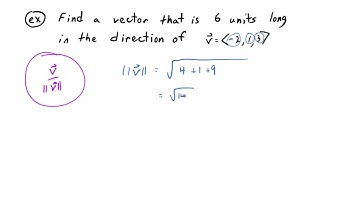 ex Find a vector that is 6 units long
in the direction of v⃗ = <-2, 1, 3>
v⃗ / ||v⃗||
||v⃗|| = √4+1+9
= √14